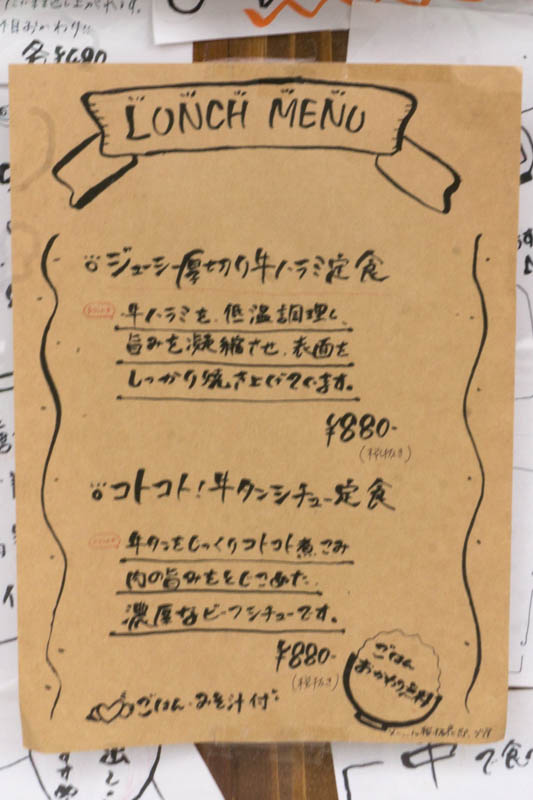 各¥680
LUNCH MENU
ジューシー厚切り牛ハラミ定食
牛ハラミを、低温調理し、
旨みを凝縮させ、表面を
しっかり焼き上げています。
¥880-
(税抜き)
コトコト!牛タンシチュー定食
牛タンをじっくりコトコト煮こみ
肉の旨みをとじこめた
濃厚なビーフシチューです。
¥880-
(税抜き)
ごはん・みそ汁付
ごはん
おかわり無料